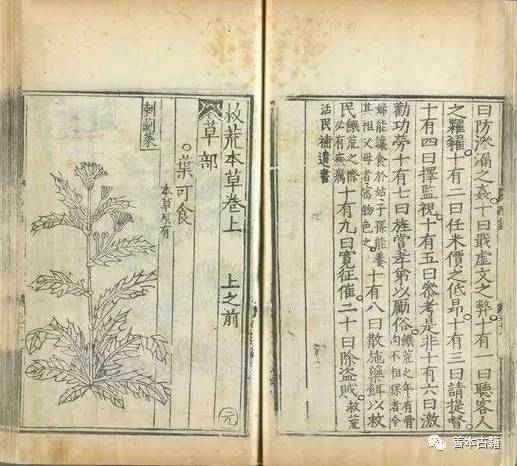 曰防淤溺之姦十曰戢虛文之弊十有一曰聽客人
之糶糴十有二曰任米價之低昂十有三曰請提督
十有四曰擇監視十有五曰參考是非十有六曰激
勸功勞十有七曰旌賞孝弟以勵俗饑荒之年有骨肉不相保者令
婦能讓食於姑子孫能養其祖父母者當物色之十有八曰散施藥餌以救
民饑荒之際必有疾癘十有九曰寬征催二十曰除盜賊救荒
活民補遺書
救荒本草卷上 上之前
草部
葉可食
本草原有
刺薊菜
元
善本古籍